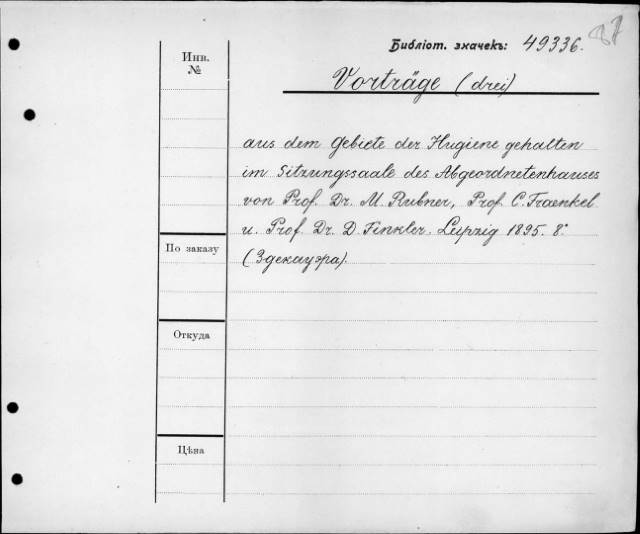 87
Библіот. значекъ: 49336.
Инв.
№
Vorträge (drei)
aus dem Gebiete der Hygiene gehalten
im Sitzungssaale des Abgeordnetenhauses
von Prof. Dr. M. Rubner, Prof. C. Fraenkel
u. Prof. Dr. D. Finkler. Leipzig 1895. 8°
(Здекауэра).
По заказу
Откуда
Цѣна